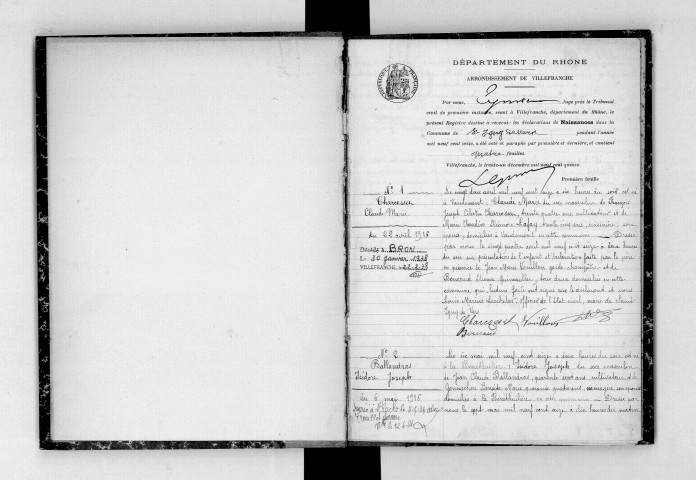 DÉPARTEMENT DU RHONE
ARRONDISSEMENT DE VILLEFRANCHE
Par nous, Juge près le Tribunal
civil de première instance, séant à Villefranche, département du Rhône, le
présent Registre destiné à recevoir les déclarations de Naissances dans la
Commune de St Igny de Vers pendant l'année
mil neuf cent seize, a été coté et paraphé par première et dernière, et contient
quatre feuilles.
Villefranche, le trente-un décembre mil neuf cent quinze.
Première feuille
N° 1
Charcosset
Claude Marie
du 22 avril 1916
Décédé à BRON
le 30 janvier 1978
VILLEFRANCHE 22.2.78
Le vingt deux avril mil neuf cent seize à six heures du soir est né
à Vaudemont : Claude Marie du sexe masculin de François
Joseph Célestin Charcosset, trente quatre ans cultivateur et de
Marie Claudine Eléonore Lafay, trente cinq ans, cuisinière, son
épouse, domiciliés à Vaudemont en cette commune. — Dressé
par nous le vingt quatre avril mil neuf cent seize à deux heures
du soir sur présentation de l'enfant et déclaration faite par le père
en présence de Jean Marie Vouillon garde champêtre et de
domiciliés en cette
commune qui, lecture faite ont signé avec le déclarant et nous
Louis Marius officier de l'état civil, maire de Saint
Igny de Vers
Charcosset Vouillon
N° 2
Ballandras
Isidore Joseph
du 6 mai 1916
Le six mai mil neuf cent seize à deux heures du soir est né
à la : Isidore Joseph du sexe masculin
de Jean Claude Ballandras, quarante sept ans, cultivateur et de
Marie quarante quatre ans, ménagère son épouse
domiciliés à la en cette commune. — Dressé par
nous le sept mai mil neuf cent seize à dix heures du matin